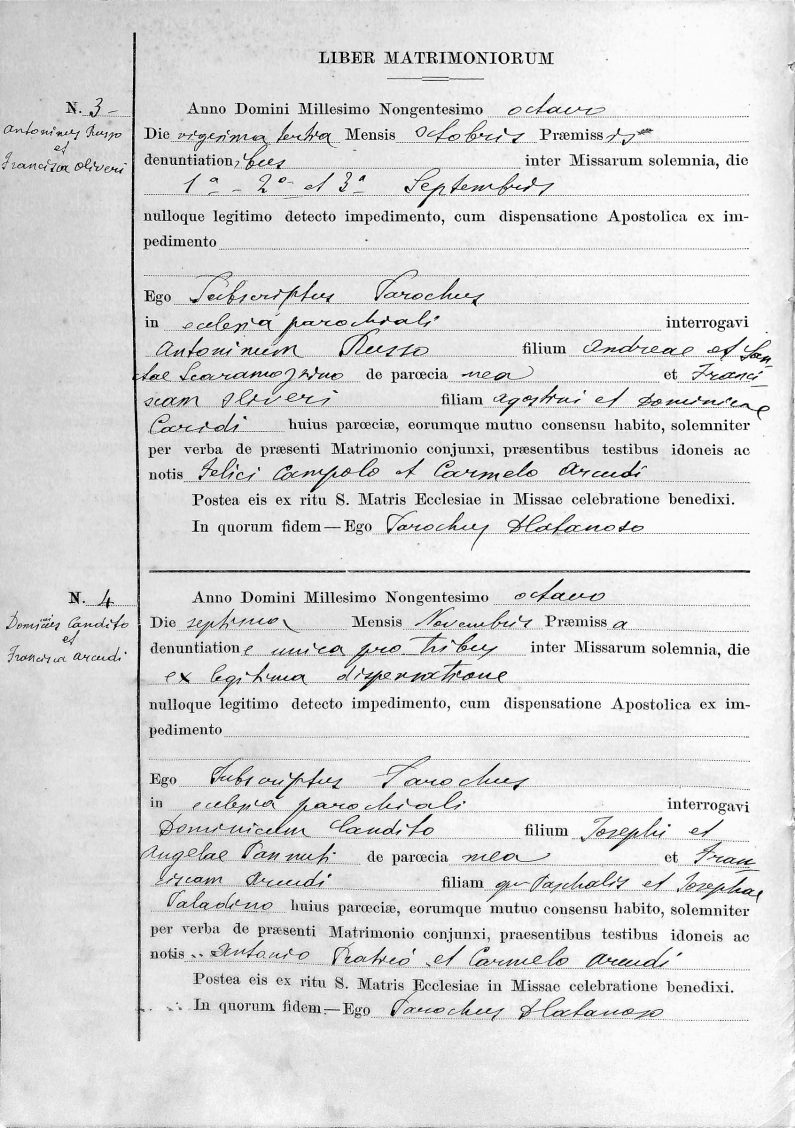 LIBER MATRIMONIORUM
N. 3
Antoninus Russo
et
Francisca Oliveri
Anno Domini Millesimo Nongentesimo octavo
Die vigesima tertia Mensis Octobris Præmissis
denuntiationibus inter Missarum solemnia, die
1a - 2a et 3a Septembris
nulloque legitimo detecto impedimento, cum dispensatione Apostolica ex im-
pedimento
Ego Subscriptus Parochus
in ecclesia parochiali interrogavi
Antoninum Russo filium Andreae et San-
tae Scaramozzino de parœcia mea et Franci-
scam Oliveri filiam Agostini et Dominicae
Caridi huius parœciæ, eorumque mutuo consensu habito, solemniter
per verba de præsenti Matrimonio conjunxi, præsentibus testibus idoneis ac
notis Felici Campolo et Carmelo Arcudi
Postea eis ex ritu S. Matris Ecclesiae in Missae celebratione benedixi.
In quorum fidem—Ego Parochus Catanoso
N. 4
Dominicus Candito
et
Francisca Arcudi
Anno Domini Millesimo Nongentesimo octavo
Die septima Mensis Novembris Præmissa
denuntiatione unica pro tribus inter Missarum solemnia, die
ex legitima dispensatione
nulloque legitimo detecto impedimento, cum dispensatione Apostolica ex im-
pedimento
Ego Subscriptus Parochus
in ecclesia parochiali interrogavi
Dominicum Candito filium Josephi et
Angelae Pannuti de parœcia mea et Fran-
ciscam Arcudi filiam Paschalis et Josephae
Paladino huius parœciæ, eorumque mutuo consensu habito, solemniter
per verba de præsenti Matrimonio conjunxi, praesentibus testibus idoneis ac
notis Antonio et Carmelo Arcudi
Postea eis ex ritu S. Matris Ecclesiae in Missae celebratione benedixi.
In quorum fidem—Ego Parochus Catanoso